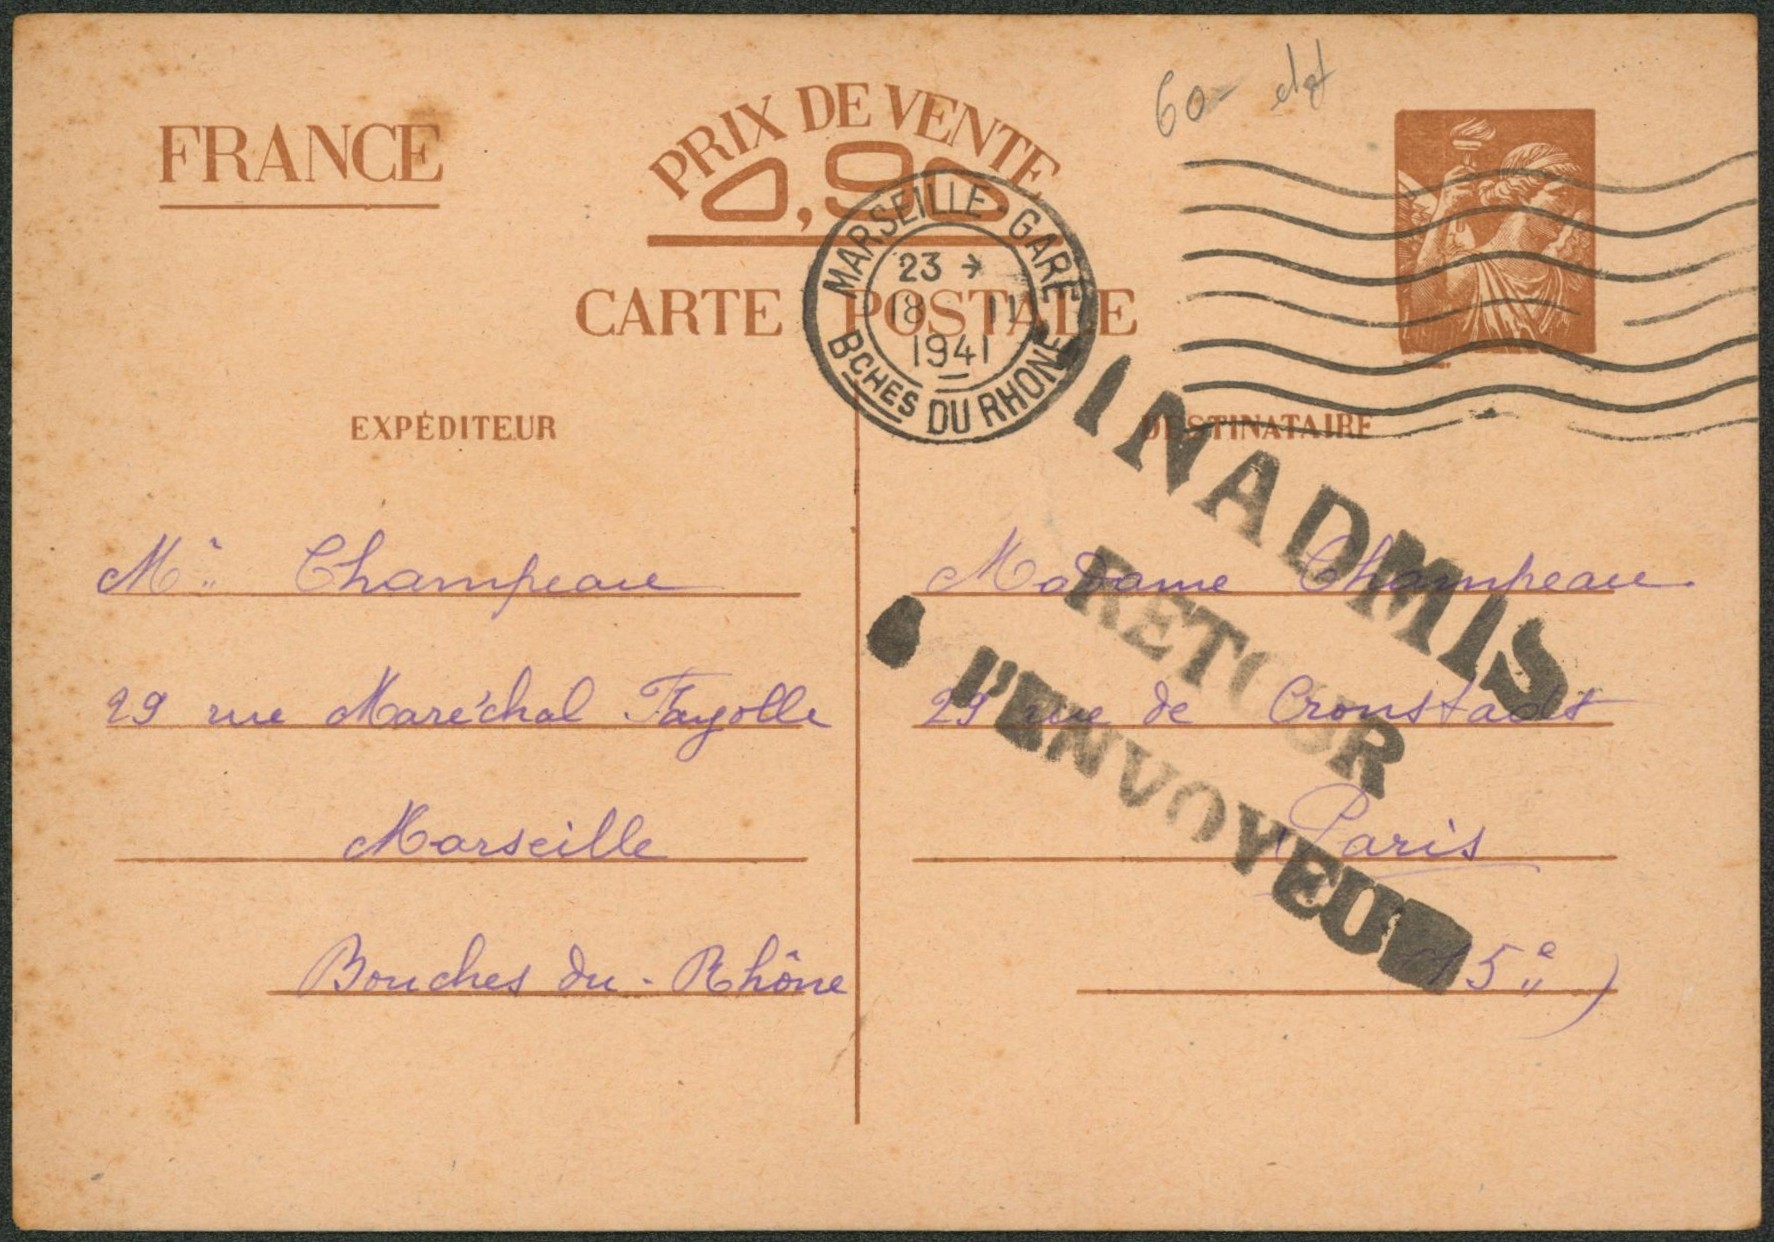 60- dgf
FRANCE
PRIX DE VENTE
0,90
CARTE POSTALE
MARSEILLE-GARE
23
18 11
1941
BCHES DU RHONE
EXPÉDITEUR
DESTINATAIRE
INADMIS
RETOUR
l'ENVOYEUR
Mr Champeau
29 rue Maréchal Fayolle
Marseille
Bouches du-Rhône
Madame Champeau.
29 rue de Cronstadt
Paris
15e)